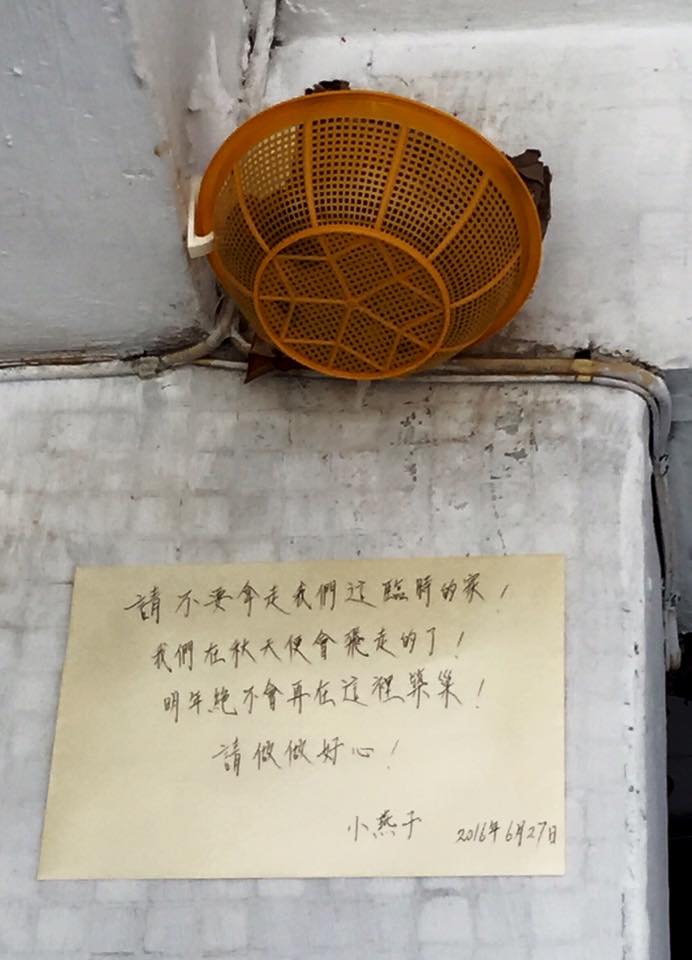 請不要拿走我們這臨時的家，
我們在秋天便會飛走的了！
明年絕不會再在這裡築巢！
請做做好心！
小燕子 2016年6月27日